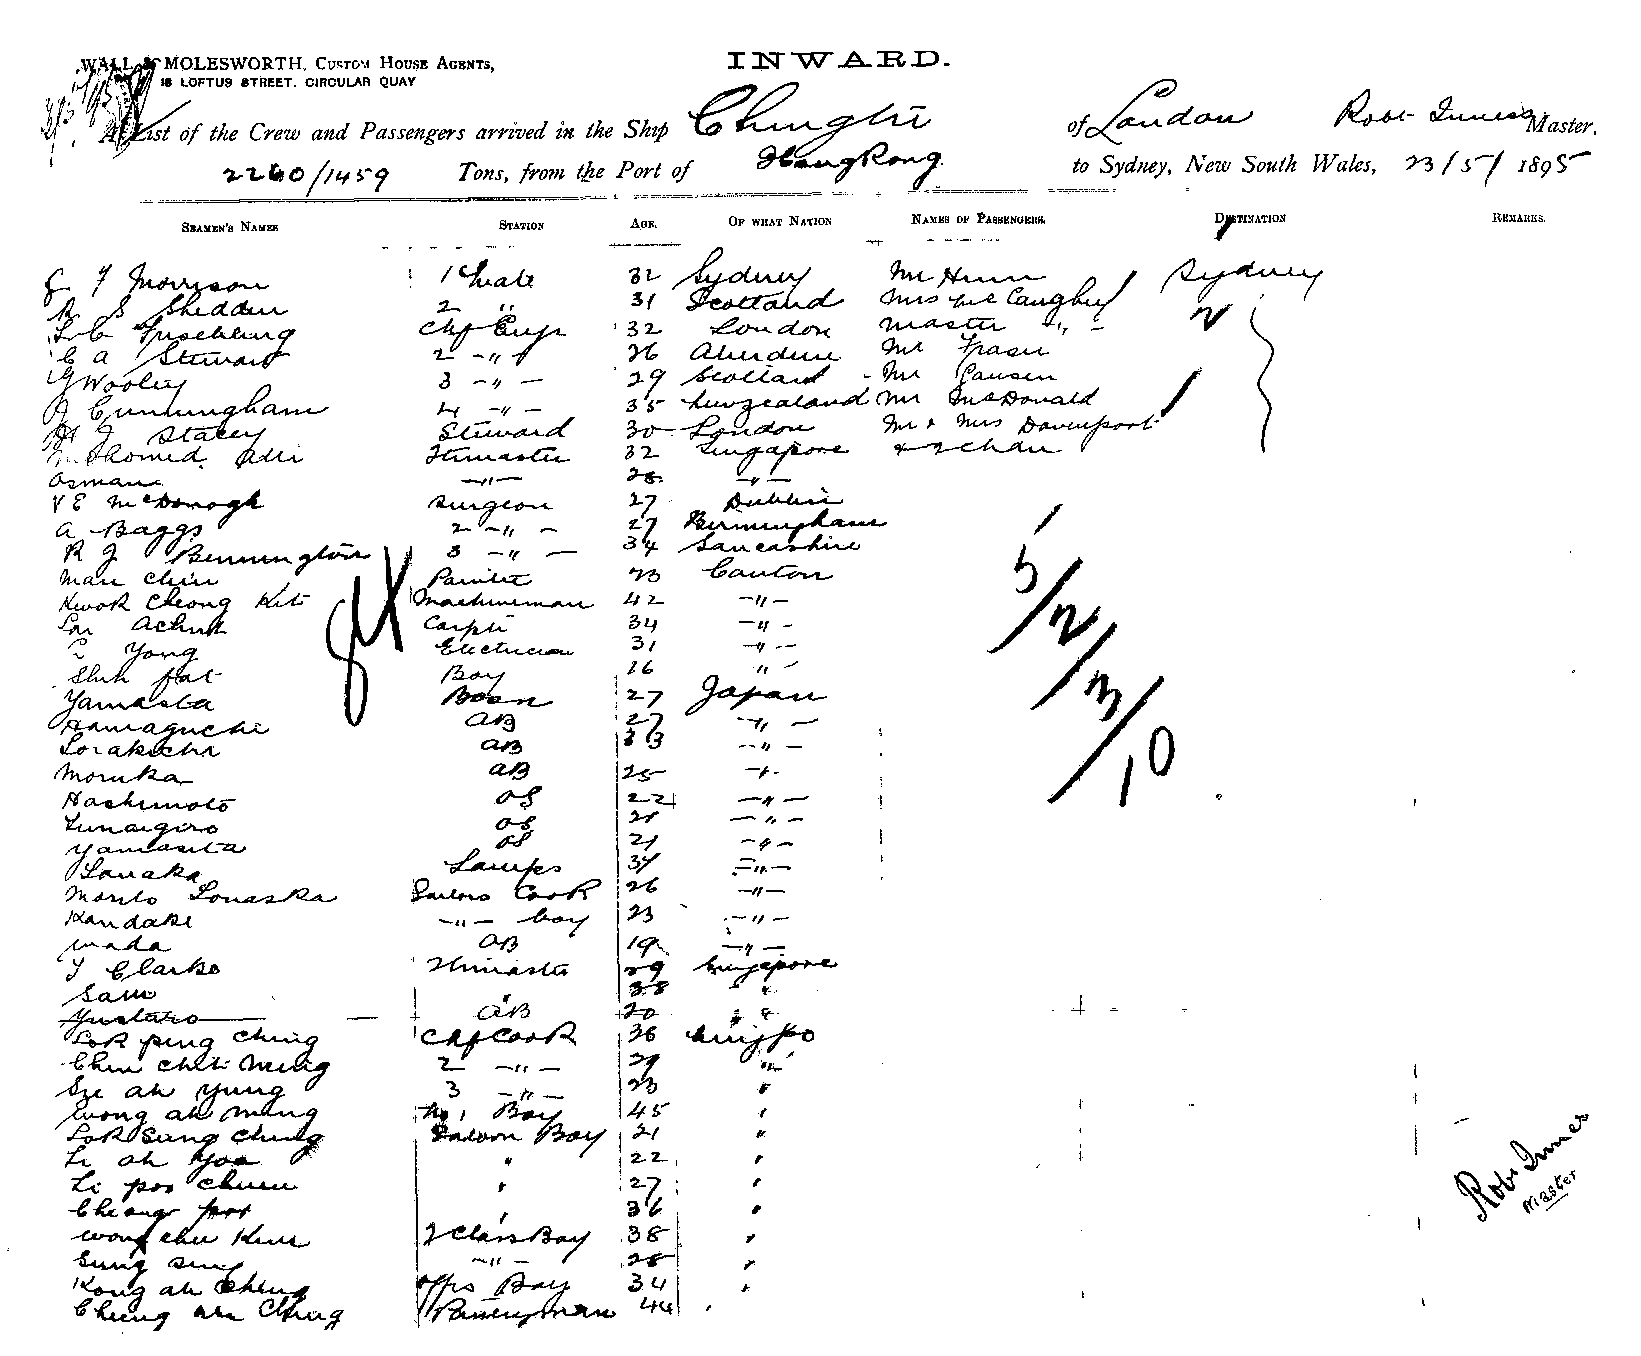 INWARD.
WALL & MOLESWORTH, CUSTOM HOUSE AGENTS,
18 LOFTUS STREET, CIRCULAR QUAY
A List of the Crew and Passengers arrived in the Ship Chingtu of London Robt Innes Master.
2260/1459 Tons, from the Port of HongKong to Sydney, New South Wales, 23/5/1895
SEAMEN'S NAMES STATION AGE. OF WHAT NATION NAMES OF PASSENGERS. DESTINATION REMARKS.
Morrison 1 Mate 32 Sydney Mr Sydney
R S Shedden 2 " 31 Scotland Mrs McCaughey "
Chf Engr 32 London Master -"-
C A Stewart 2 -"- 26 Aberdeen Mr Fraser
G Wooley 3 -"- 29 Scotland Mr Pausen
J Cunningham 4 -"- 35 Newzealand Mr McDonald
H J Stacey Steward 30 London Mr & Mrs Davenport
32 Singapore & 2 chdn
Osman -"- 28 -"-
V E McDonogh Surgeon 27 Dublin
A Baggs 2 -"- 27 Birmingham
R J Bennington 3 -"- 34 Lancashire
Man Chin Painter 23 Canton
Kwok Cheong Kit Machineman 42 -"-
Carptr 34 -"-
Yong Electrician 31 -"-
Fat Boy 16 "
Yamasta Bosn 27 Japan
Hamaguchi AB 27 -"-
AB 33 -"-
Moruka AB 25 -"-
Hashimoto OS 22 -"-
OS 21 -"-
Yamasita OS 21 -"-
Tanaka Lamps 34 -"-
Sailors Cook 26 -"-
Kandaki -"- boy 23 -"-
Wada AB 19 -"-
Clarke 29 Singapore
Sam 38 "
AB 20 "
Lok ping Ching Chf Cook 36 Ningpo
Chin Chih Ming 2 -"- 29 "
Sze ah Yung 3 -"- 23 "
Wong ah Ming No 1 Boy 45 "
Lok Sung Ching Saloon Boy 21 "
Li ah Yoo " 22 "
Li poo Chuen " 27 "
Cheong " 36 "
Wong chu Kim 2 Class Boy 38 "
Sung Sing -"- 28 "
Kong ah Cheng Offrs Boy 34 "
Cheung Ching Pantryman 44 "
5/2/3/10
Robt Innes
Master